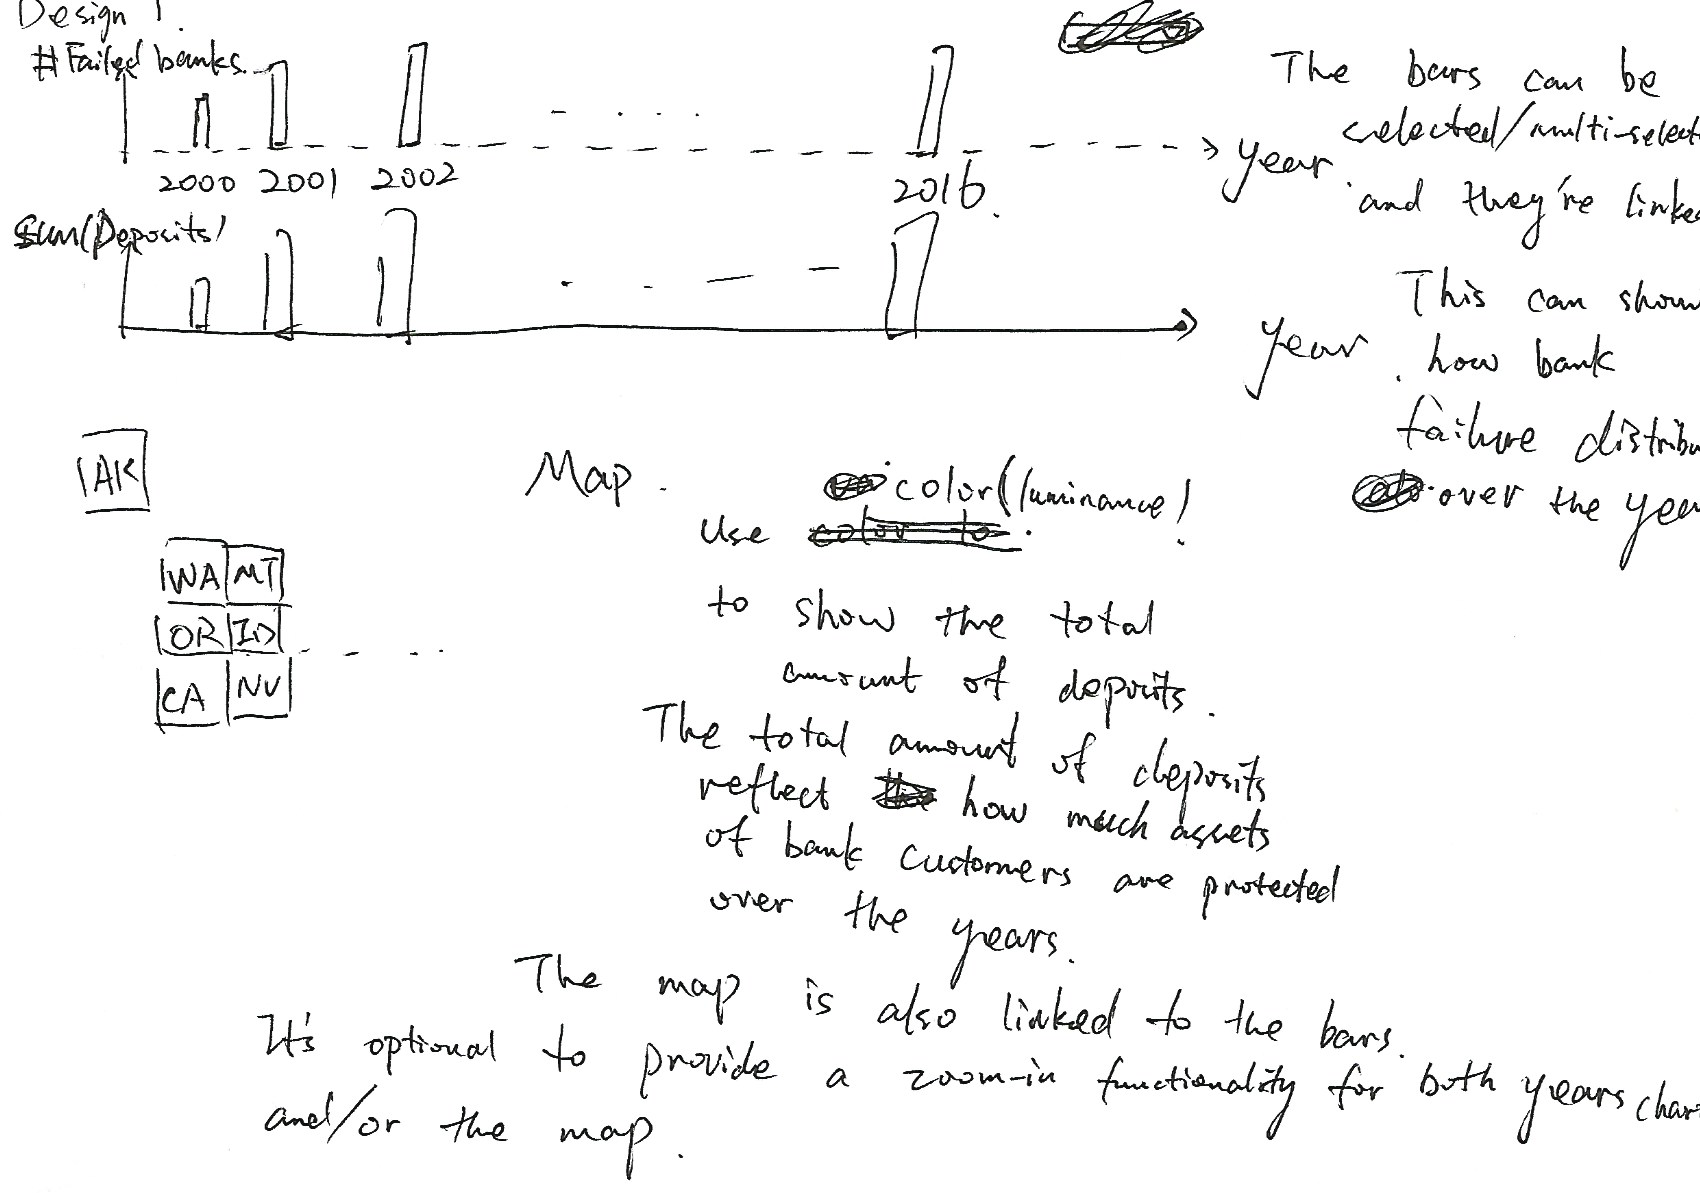 Design 1.
#Failed banks.
2000 2001 2002 2016.
year
sum(Deposits)
year
The bars can be
selected/multi-select
and they're linke
This can show
how bank
failure distribu
over the yea
AK
WA MT
OR ID
CA NV
Map.
color(luminance)
Use color to.
to show the total
amount of deposits.
The total amount of deposits
reflect how much assets
of bank customers are protected
over the years.
The map is also linked to the bars.
It's optional to provide a zoom-in functionality for both years char
and/or the map.